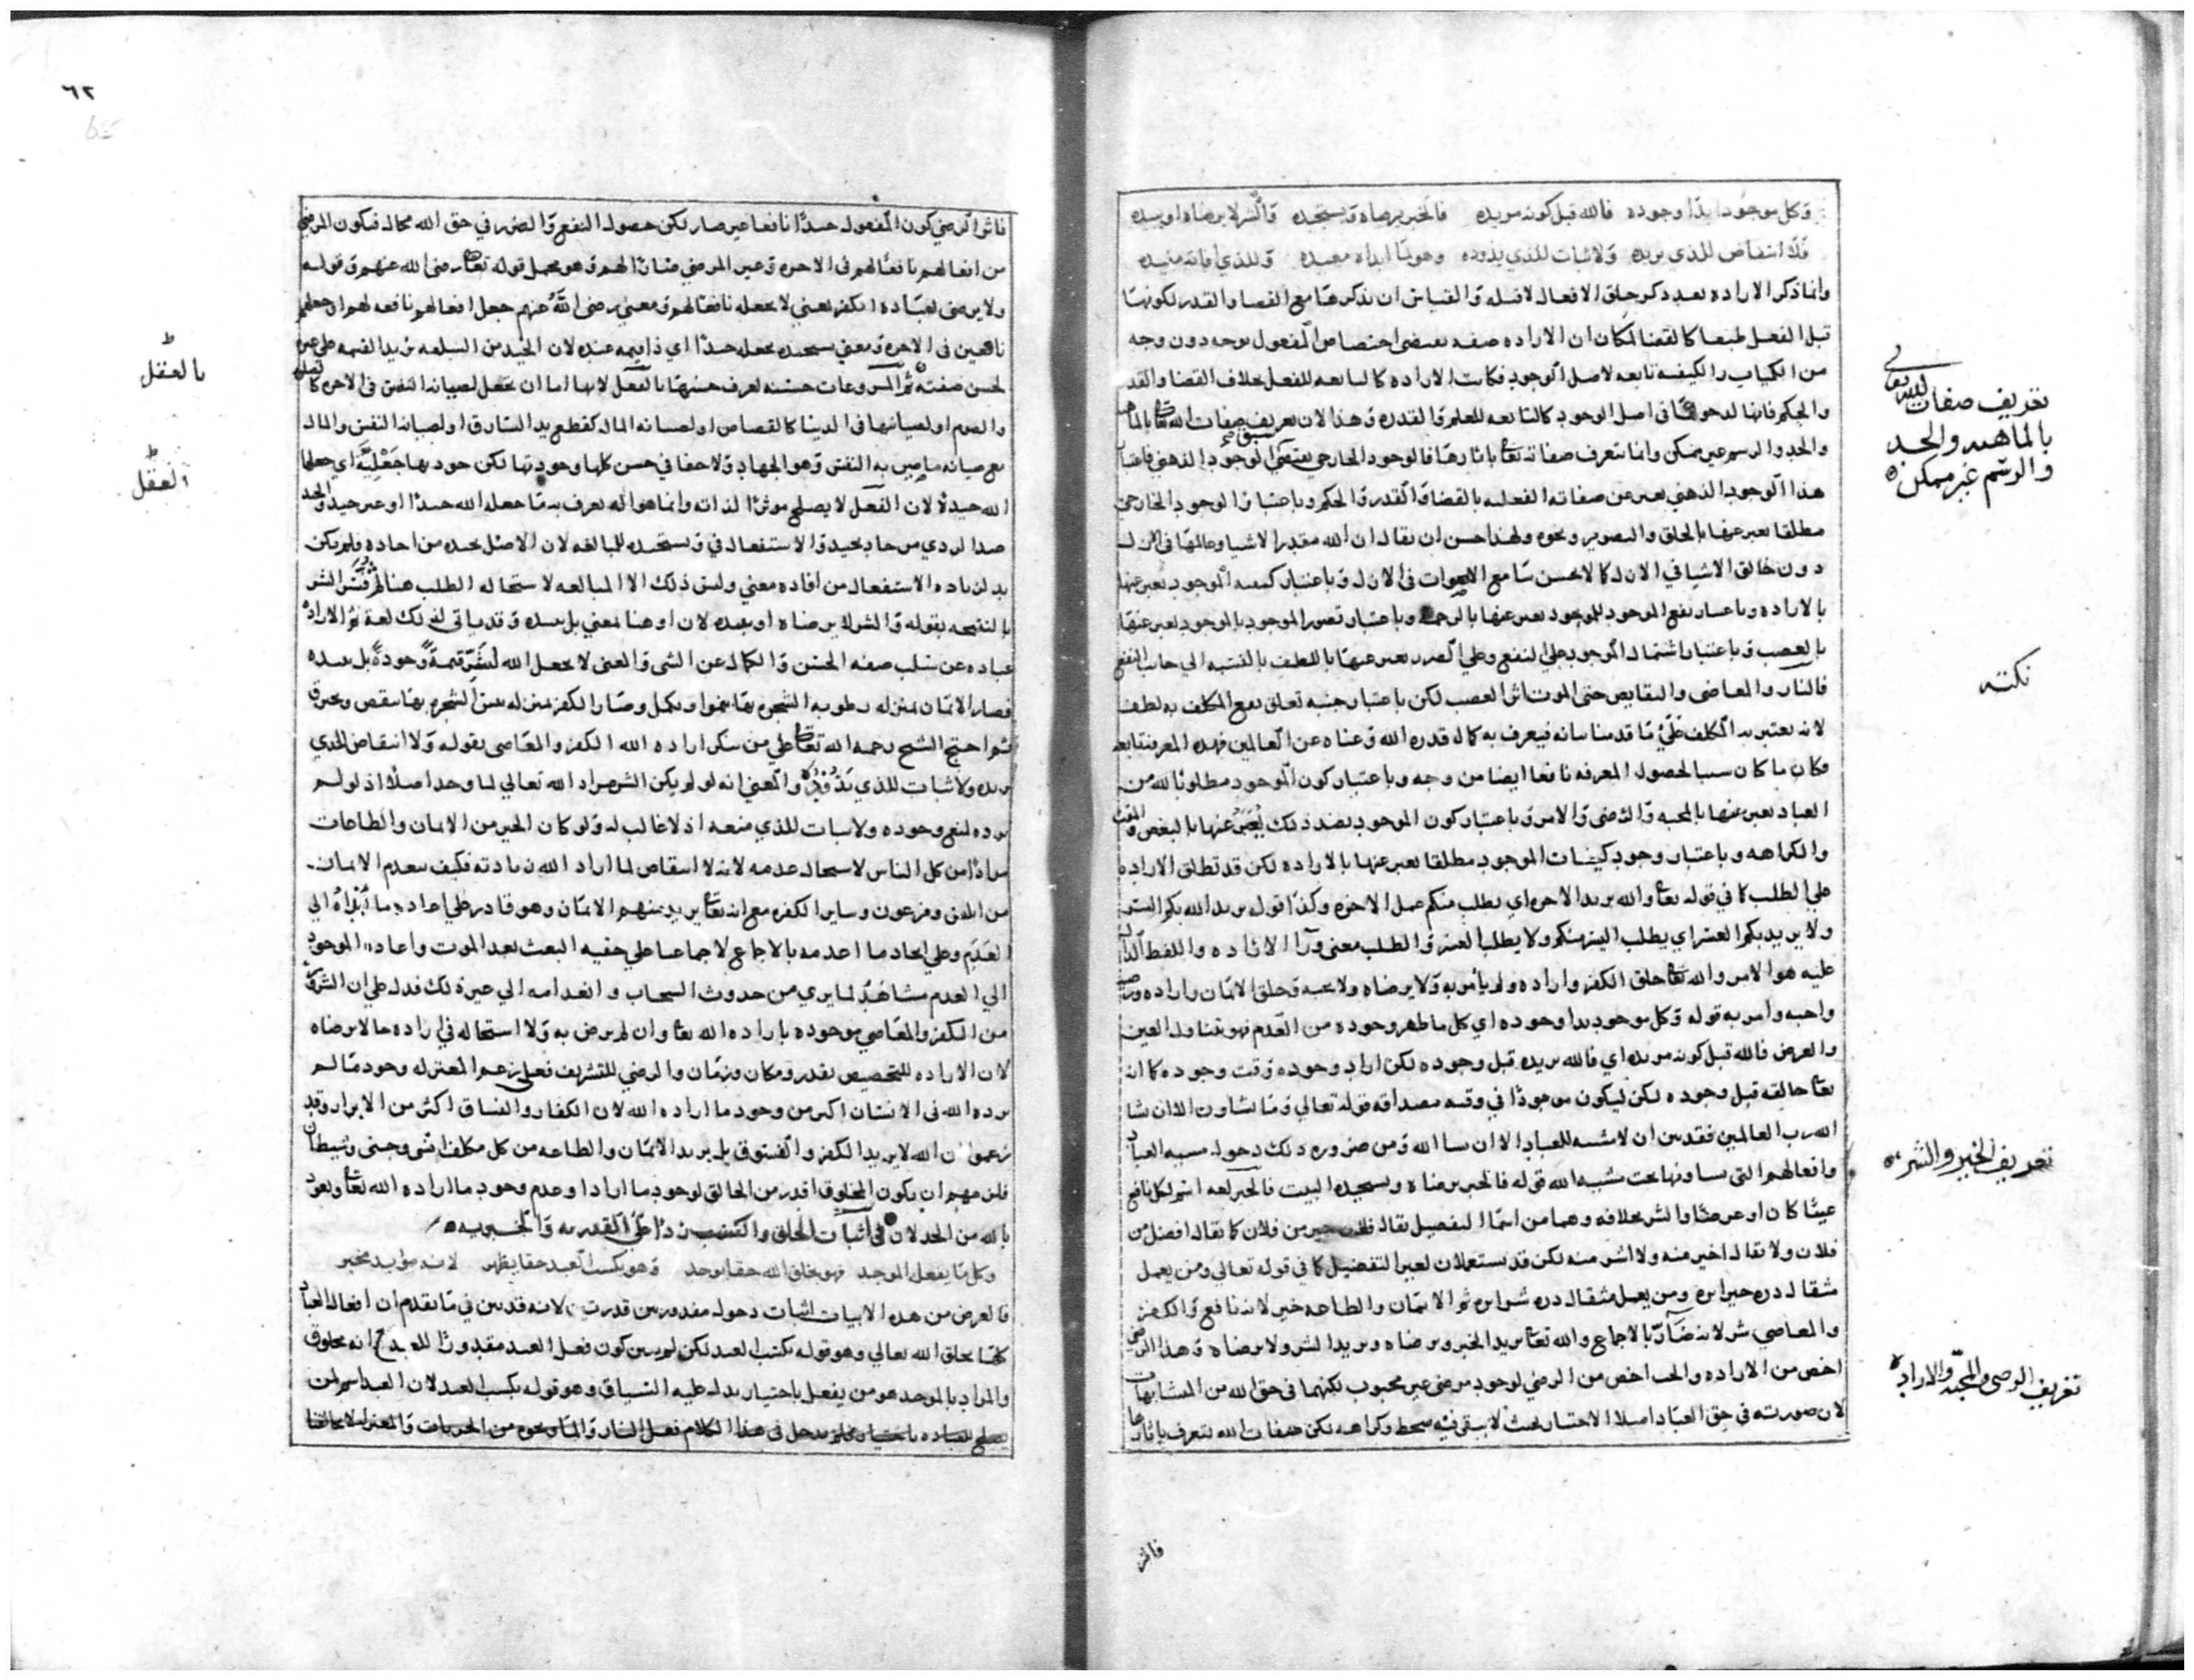 وكل موجود بدا وجوده فالله قبل كونه مريده فالخير يرضاه ويستجيده والشر لا يرضاه او يبيده
فلا انتقاض للذي يريده ولا ثبات للذي يذوده وهو لما ابداه معيده وللذي افاته مفيده
وانما ذكر الاراده بعد ذكر خلق الافعال لا قبله والقياس ان يذكرها مع القضا والقدر لكونها
قبل الفعل طبعا كالقضا لمكان ان الاراده صفه تقتضي اختصاص المفعول بوجه دون وجه
من الكميات والكيفيه تابعه لاصل الوجود فكانت الاراده كالتابعه للفعل بخلاف القضا والقدر
والحكم فانها لدخولها في اصل الوجود كالتابعه للعلم والقدره وهذا لان تعريف صفات الله تعا بالماهيه
والحد والرسم غير ممكن وانما تعرف صفاته تعا باثارها فالوجود الخارجي يقتضي الوجود الذهني فاعتبار
هذا الوجود الذهني يعبر عن صفاته الفعليه بالقضا والقدر والحكم وباعتبار الوجود الخارجي
مطلقا يعبر عنها بالخلق والتصوير ونحوه ولهذا حسن ان يقال ان الله مقدر الاشيا وعالمها في الازل
دون خالق الاشيا في الازل كما لا يحسن سامع الاصوات في الازل وباعتبار كيفيه الموجود يعبر عنها
بالاراده وباعتبار نفع الموجود للموجود يعبر عنها بالرحمه وباعتبار تضرر الموجود بالموجود يعبر عنها
بالغضب وباعتبار اشتمال الموجود على النفع وعلى الضرر يعبر عنها باللطف بالنسبه الى جانب النفع
فالنار والمعاصي والنقايص حتى الموت اثر الغضب لكن باعتبار جنبه تعلق نفع المكلف به لطف
لانه يعتبر به المكلف على ما قدمنا بيانه فيعرف به كمال قدره الله وغناه عن العالمين فهذه المعرفه نافعه
وكان ما كان سببا لحصول المعرفه نافعا ايضا من وجه وباعتبار كون الموجود مطلوبا لله من
العباد يعبر عنها بالمحبه والرضى والامر وباعتبار كون الموجود بضد ذلك يعبر عنها بالبغض والمقت
والكراهه وباعتبار وجود كيفيات الموجود مطلقا يعبر عنها بالاراده لكن قد تطلق الاراده
على الطلب كما في قوله تعا والله يريد الاخره اي يطلب منكم عمل الاخره وكذا قوله يريد الله بكم اليسر
ولا يريد بكم العسر اي يطلب اليسر منكم ولا يطلب العسر والطلب معنى ورا الاراده واللفظ الدال
عليه هو الامر والله تعا خلق الكفر واراده ولم يأمر به ولا يرضاه ولا يحبه وخلق الايمان واراده ورضيه
واحبه وامر به قوله وكل موجود بدا وجوده اي كل ما ظهر وجوده من العدم فهو يتناول العين
والعرض فالله قبل كونه مريده اي فالله يريده قبل وجوده لكن اراد وجوده وقت وجوده كما انه
تعا خالقه قبل وجوده لكن ليكون موجودا في وقته مصداقه قوله تعالى وما تشاون الا ان يشا
الله رب العالمين فقد بين ان لا مشيه للعباد الا ان يشا الله ومن ضروره ذلك دخول مشيه العباد
وافعالهم التي يشاونها تحت مشيه الله قوله فالخير يرضاه ويستجيده البيت فالخير لغه اسم لكل نافع
عينا كان او عرضا والشر بخلافه وهما من اسما التفضيل يقال فلان خير من فلان كما يقال افضل من
فلان ولا يقال اخير منه ولا اشر منه لكن قد يستعملان لغير التفضيل كما في قوله تعالى ومن يعمل
مثقال ذره خيرا يره ومن يعمل مثقال ذره شرا يره ثم الايمان والطاعه خير لانه نافع والكفر
والمعاصي شر لانه ضار بالاجماع والله تعا يريد الخير ويرضاه ويريد الشر ولا يرضاه وهذا الرضى
اخص من الاراده والحب اخص من الرضي لوجود مرضي غير محبوب لكنهما في حق الله من المتشابهات
لان صورته في حق العباد امتلا الاختيار بحيث لا يبقى فيه سخط وكراهه لكن صفات الله تتعرف باثارها
فاثر
تعريف صفات الله تعالى
بالماهيه والحد
والرسم غير ممكن
نكته
تعريف الخير والشر
تعريف الرضى والمحبه والاراده
٦٢
65
فاثر الرضي كون المفعول جيدا نافعا غير ضار لكن حصول النفع والضرر في حق الله محال فيكون المرضي
من افعالهم نافعا لهم في الاخره وغير المرضي ضارا لهم وهو محمل قوله تعا رضي الله عنهم وقوله
ولا يرضى لعباده الكفر يعني لا يجعله نافعا لهم ومعنى رضى الله عنهم جعل افعالهم نافعه لهم او جعلهم
نافعين في الاخره ومعنى يستجيده يجعله جيدا اي ذا قيمه عنده لان الجيد من السلعه يزيد القيمه على غيره
لحسن صفته ثم المشروعات حسنه تعرف حسنها بالفعل لانها اما ان تجعل لصيانه النفس في الاخره كالصلوه
والصوم او لصيانتها في الدنيا كالقصاص او لصيانه المال كقطع يد السارق او لصيانه النفس والمال
مع صيانه ما يصير به النفس وهو الجهاد ولا خفا في حسن كلها وجودتها لكن جودتها جعلية اي جعلها
الله جيده لان الفعل لا يصلح موثرا لذاته وانما هو اله تعرف به ما جعله الله جيدا او غير جيد والجيد
ضد الردي من جاد يجيد والاستفعال في ويستجيده للمبالغه لان الاصل يجيده من اجاده ولم يكن
بد لزياده الاستفعال من افاده معني وليس ذلك الا المبالغه لاستحاله الطلب هنا ثم فسر الشر
بالنتيجه بقوله والشر لا يرضاه او يبيده لان او هنا بمعنى بل يبيده وقد ياتي لغه كذلك ثم الاراده
عباره عن سلب صفه الحسن والكمال عن الشي والمعنى لا يجعل الله للشر قيمة وجودة بل يبيده
فصار الايمان بمنزله رطوبه الشجره بها تنموا وتكمل وصار الكفر بمنزله يبس الشجره بها تنقص وتحرق
ثم احتج الشيخ رحمه الله تعا على من ينكر اراده الله الكفر والمعاصي بقوله ولا انتقاض للذي
يريده ولا ثبات للذي يذوده والمعنى انه لو لم يكن الشر مراد الله تعالى لما وجد اصلا اذ لو لم
يرده لمنع وجوده ولا ثبات للذي منعه اذ لا غالب له ولو كان الخير من الايمان والطاعات
مرادا من كل الناس لاستحال عدمه لانه لا انتقاض لما اراد الله زيادته فكيف بعدم الايمان
من ابليس وفرعون وساير الكفره مع انه تعا يريد منهم الايمان وهو قادر على اعاده ما ابداه الى
العدم وعلى ايجاد ما اعدمه بالاجماع لاجماعنا على حقيه البعث بعد الموت واعاده الموجود
الى العدم مشاهد لما يرى من حدوث السحاب وانعدامه الى غير ذلك فدل على ان الشرور
من الكفر والمعاصي موجوده باراده الله تعا وان لم يرض به ولا استحاله في اراده ما لا يرضاه
لان الاراده للتخصيص بقدر ومكان وزمان والرضي للتشريف فعلى زعم المعتزله وجود ما لم
يرده الله في الانسان اكثر من وجود ما اراده الله لان الكفار والفساق اكثر من الابرار وقد
زعموا ان الله لا يريد الكفر والفسوق بل يريد الايمان والطاعه من كل مكلف انسي وجني وشيطان
فلزمهم ان يكون المخلوق اقدر من الخالق لوجود ما ارادوا وعدم وجود ما اراده الله تعا ونعوذ
بالله من الخذلان في اثبات الخلق والكسب ردا على القدريه والجبريه
وكل ما يفعله الموحد فهو بخلق الله حقا يوجد وهو بكسب العبد حقا يظهر لانه مؤيد مخير
فالغرض من هذه الابيات اثبات دخول مقدور بين قدرتين لانه قد بين في ما تقدم ان افعال العباد
كلها بخلق الله تعالى وهو قوله بكسب العبد لكن لم يبين كون فعل العبد مقدورا للعبد مع انه مخلوق
والمراد بالموحد هو من يفعل باختيار يدل عليه السياق وهو قوله بكسب العبد لان العبد اسم لمن
يصلح للعباده باختياره فلم يدخل في هذا الكلام فعل النار والماء ونحوه من الجمادات والمعتزله خالفنا
بالعقل
العقل